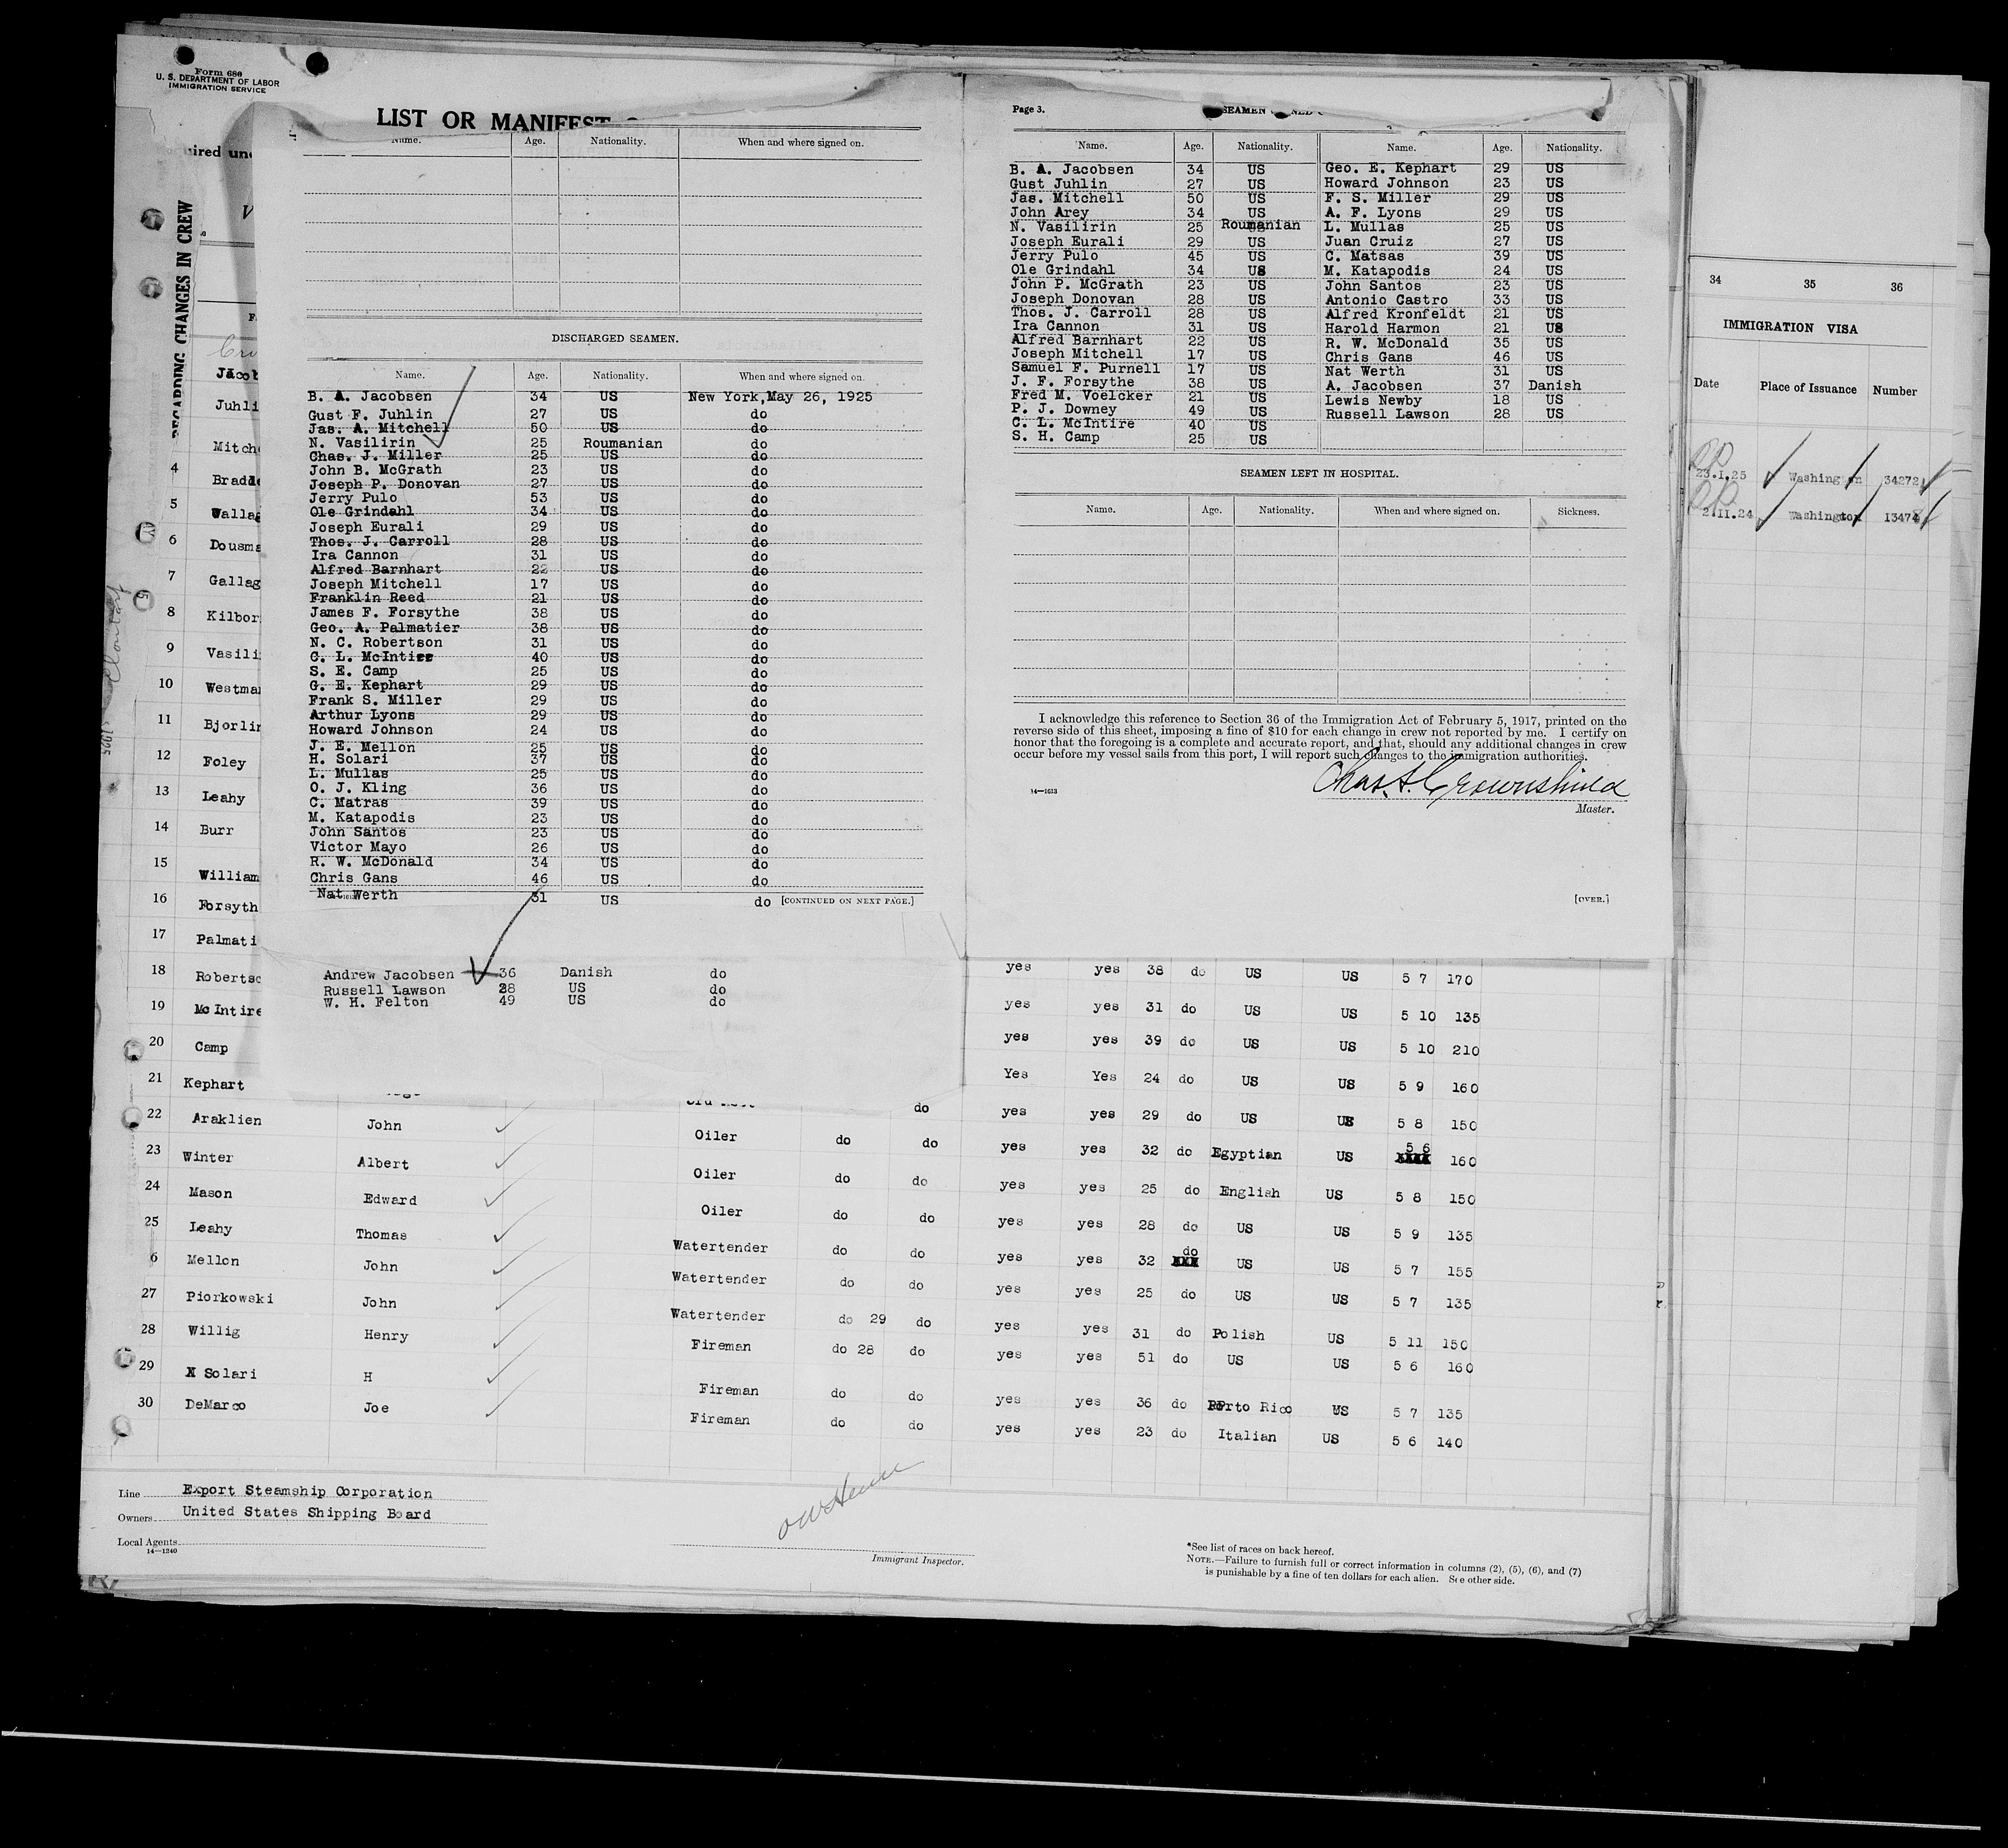 Form 680
U. S. DEPARTMENT OF LABOR
IMMIGRATION SERVICE
LIST OR MANIFEST
REGARDING CHANGES IN CREW
Name. Age. Nationality. When and where signed on.
DISCHARGED SEAMEN.
Name. Age. Nationality. When and where signed on.
B. A. Jacobsen 34 US New York,May 26, 1925
Gust F. Juhlin 27 US do
Jas. A. Mitchell 50 US do
N. Vasilirin 25 Roumanian do
Chas. J. Miller 25 US do
John B. McGrath 23 US do
Joseph P. Donovan 27 US do
Jerry Pulo 53 US do
Ole Grindahl 34 US do
Joseph Eurali 29 US do
Thos. J. Carroll 28 US do
Ira Cannon 31 US do
Alfred Barnhart 22 US do
Joseph Mitchell 17 US do
Franklin Reed 21 US do
James F. Forsythe 38 US do
Geo. A. Palmatier 38 US do
N. C. Robertson 31 US do
G. L. McIntire 40 US do
S. E. Camp 25 US do
G. E. Kephart 29 US do
Frank S. Miller 29 US do
Arthur Lyons 29 US do
Howard Johnson 24 US do
J. E. Mellon 25 US do
H. Solari 37 US do
L. Mullas 25 US do
O. J. Kling 36 US do
C. Matras 39 US do
M. Katapodis 23 US do
John Santos 23 US do
Victor Mayo 26 US do
R. W. McDonald 34 US do
Chris Gans 46 US do
Nat Werth 31 US do [CONTINUED ON NEXT PAGE.]
Andrew Jacobsen 36 Danish do
Russell Lawson 28 US do
W. H. Felton 49 US do
Page 3.
Name. Age. Nationality. Name. Age. Nationality.
B. A. Jacobsen 34 US Geo. E. Kephart 29 US
Gust Juhlin 27 US Howard Johnson 23 US
Jas. Mitchell 50 US F. S. Miller 29 US
John Arey 34 US A. F. Lyons 29 US
N. Vasilirin 25 Roumanian L. Mullas 25 US
Joseph Eurali 29 US Juan Cruiz 27 US
Jerry Pulo 45 US C. Matsas 39 US
Ole Grindahl 34 US M. Katapodis 24 US
John P. McGrath 23 US John Santos 23 US
Joseph Donovan 28 US Antonio Castro 33 US
Thos. J. Carroll 28 US Alfred Kronfeldt 21 US
Ira Cannon 31 US Harold Harmon 21 US
Alfred Barnhart 22 US R. W. McDonald 35 US
Joseph Mitchell 17 US Chris Gans 46 US
Samuel F. Purnell 17 US Nat Werth 31 US
J. F. Forsythe 38 US A. Jacobsen 37 Danish
Fred M. Voelcker 21 US Lewis Newby 18 US
P. J. Downey 49 US Russell Lawson 28 US
C. L. McIntire 40 US
S. H. Camp 25 US
SEAMEN LEFT IN HOSPITAL.
Name. Age. Nationality. When and where signed on. Sickness.
I acknowledge this reference to Section 36 of the Immigration Act of February 5, 1917, printed on the
reverse side of this sheet, imposing a fine of $10 for each change in crew not reported by me. I certify on
honor that the foregoing is a complete and accurate report, and that, should any additional changes in crew
occur before my vessel sails from this port, I will report such changes to the immigration authorities.
Chas. A. Crownshield
14—1613
Master.
[OVER.]
34 35 36
IMMIGRATION VISA
Date Place of Issuance Number
23.1.25 Washington 34272
2.11.24 Washington 13474
Jacob
Juhli
Mitch
4 Bradd
5 Wallag
6 Dousma
7 Gallag
8 Kilbor
9 Vasili
10 Westma
11 Bjorlin
12 Foley
13 Leahy
14 Burr
15 William
16 Forsyth
17 Palmati
18 Robertso
19 McIntire
20 Camp
21 Kephart
yes yes 38 do US US 5 7 170
yes yes 31 do US US 5 10 135
yes yes 39 do US US 5 10 210
Yes Yes 24 do US US 5 9 160
do yes yes 29 do US US 5 8 150
22 Araklien John Oiler do do yes yes 32 do Egyptian US 5 6 160
23 Winter Albert Oiler do do yes yes 25 do English US 5 8 150
24 Mason Edward Oiler do do yes yes 28 do US US 5 9 135
25 Leahy Thomas Watertender do do yes yes 32 do US US 5 7 155
6 Mellon John Watertender do do yes yes 25 do US US 5 7 135
27 Piorkowski John Watertender do 29 do yes yes 31 do Polish US 5 11 150
28 Willig Henry Fireman do 28 do yes yes 51 do US US 5 6 160
29 X Solari H Fireman do do yes yes 36 do Porto Rico US 5 7 135
30 DeMarco Joe Fireman do do yes yes 23 do Italian US 5 6 140
Line Export Steamship Corporation
Owners United States Shipping Board
Local Agents
14—1240
Immigrant Inspector.
*See list of races on back hereof.
NOTE.—Failure to furnish full or correct information in columns (2), (5), (6), and (7)
is punishable by a fine of ten dollars for each alien. See other side.